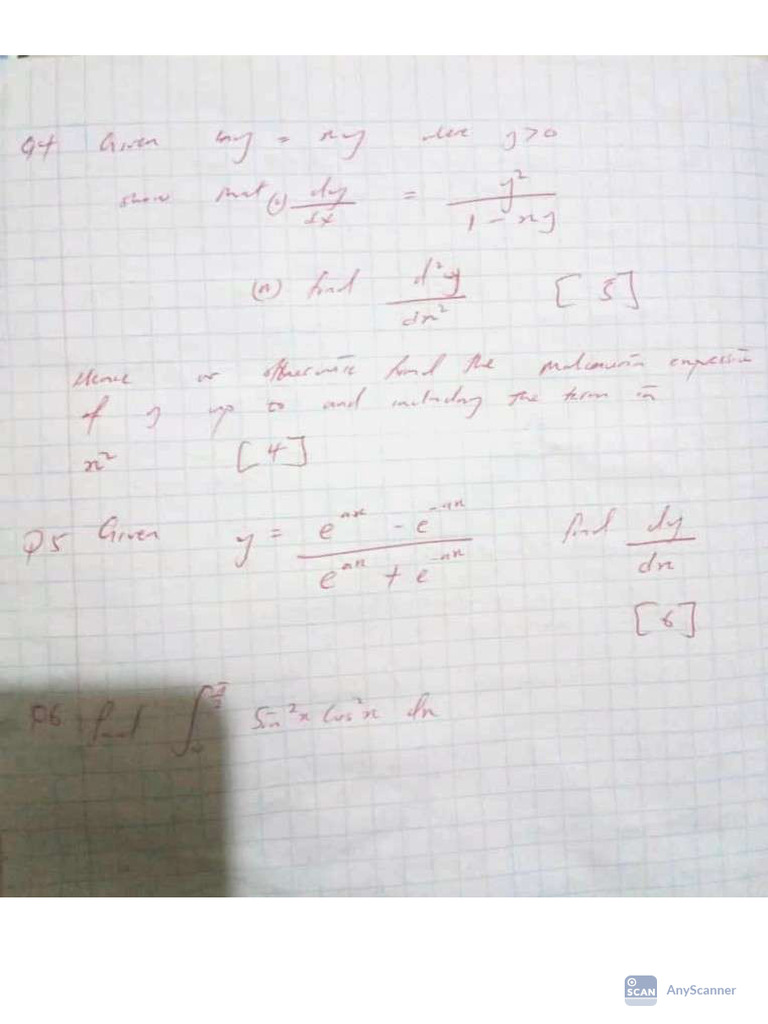 Q4 Given lny = xy where y>0
show that (i) dy/dx = y²/(1 - xy)
(ii) find d²y/dx² [5]
Hence or otherwise find the maclaurin expression
of y up to and including the term in
x² [4]
Q5 Given y = (e^ax - e^-ax)/(e^ax + e^-ax) find dy/dx
[6]
Q6 find ∫ Sin²x Cos²x dx
SCAN AnyScanner